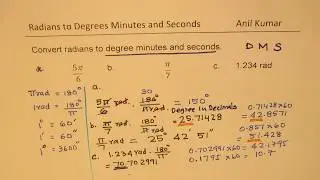 Radians to Degrees Minutes and Seconds
Anil Kumar
Convert radians to degree minutes and seconds.
D M S
a. 5π/6
b. π/7
c. 1.234 rad
πrad = 180°
1rad = 180°/π
1° = 60'
1' = 60"
1° = 3600"
a.
30
5π/6 rad. 180°/πrad = 150°
Degree in Decimals
b. π/7 rad. 180°/πrad = 25.71428
π/7 rad = 25° 42' 51"
c. 1.234 rad. 180°/πrad
= 70.702991
0.71428×60
= 42.8571
0.857×60
= 51.428
0.702991×60
= 42.1795
0.1795×60 = 10.7